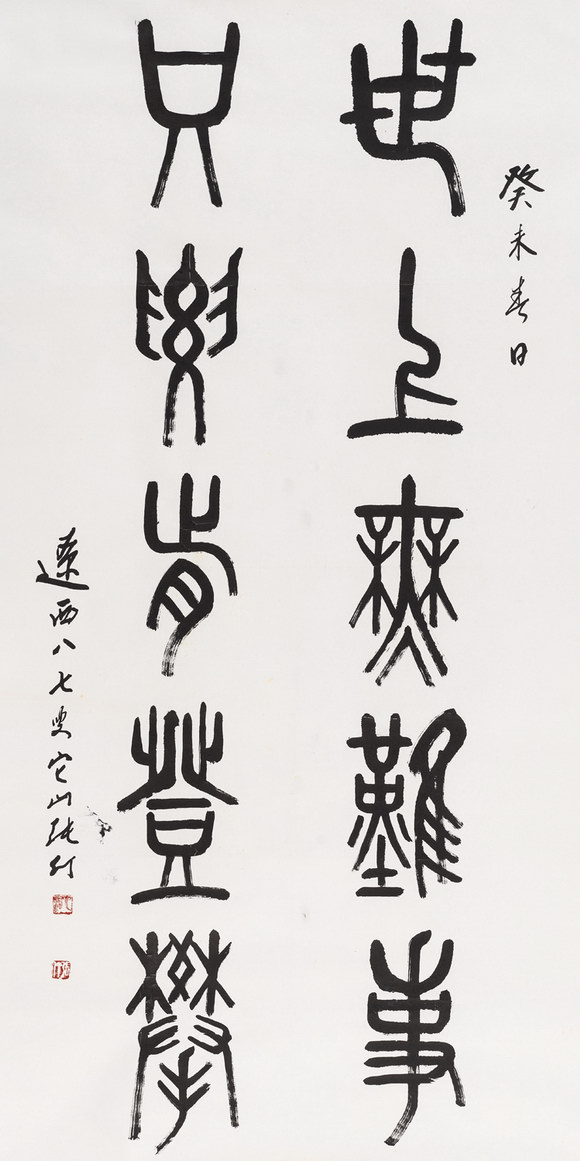 癸未春日
世上無難事
只要肯登攀
遼西八七叟它山張行